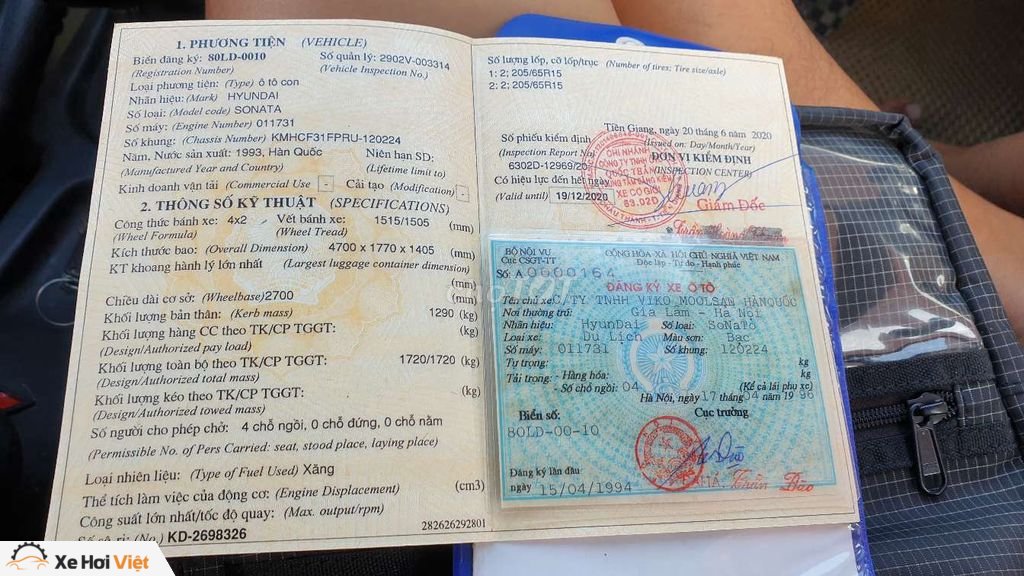 1. PHƯƠNG TIỆN (VEHICLE)
Biển đăng ký: 80LD-0010 Số quản lý: 2902V-003314
(Registration Number) (Vehicle Inspection No.)
Loại phương tiện: (Type) ô tô con
Nhãn hiệu: (Mark) HYUNDAI
Số loại: (Model code) SONATA
Số máy: (Engine Number) 011731
Số khung: (Chassis Number) KMHCF31FPRU-120224
Năm, Nước sản xuất: 1993, Hàn Quốc Niên hạn SD:
(Manufactured Year and Country) (Lifetime limit to)
Kinh doanh vận tải (Commercial Use - Cải tạo (Modification) -
2. THÔNG SỐ KỸ THUẬT (SPECIFICATIONS)
Công thức bánh xe: 4x2 Vết bánh xe: 1515/1505 (mm)
(Wheel Formula) (Wheel Tread)
Kích thước bao: (Overall Dimension) 4700 x 1770 x 1405 (mm)
KT khoang hành lý lớn nhất (Largest luggage container dimension)
(mm)
Chiều dài cơ sở: (Wheelbase) 2700 (mm)
Khối lượng bản thân: (Kerb mass) 1290 (kg)
Khối lượng hàng CC theo TK/CP TGGT: (kg)
(Design/Authorized pay load)
Khối lượng toàn bộ theo TK/CP TGGT: 1720/1720 (kg)
(Design/Authorized total mass)
Khối lượng kéo theo TK/CP TGGT: (kg)
(Design/Authorized towed mass)
Số người cho phép chở: 4 chỗ ngồi, 0 chỗ đứng, 0 chỗ nằm
(Permissible No. of Pers Carried: seat, stood place, laying place)
Loại nhiên liệu: (Type of Fuel Used) Xăng
Thể tích làm việc của động cơ: (Engine Displacement) (cm3)
Công suất lớn nhất/tốc độ quay: (Max. output/rpm)
282626292801
(No.) KD-2698326
Số lượng lốp, cỡ lốp/trục (Number of tires; Tire size/axle)
1: 2; 205/65R15
2: 2; 205/65R15
Tiền Giang, ngày 20 tháng 6 năm 2020
(Issued on: Day/Month/Year)
Số phiếu kiểm định ĐƠN VỊ KIỂM ĐỊNH
(Inspection Report No) (INSPECTION CENTER)
6302D-12969/20
Có hiệu lực đến hết ngày
(Valid until) 19/12/2020
CHI NHÁNH
CÔNG TY TNHH
QUỐC TRẦN
TRUNG TÂM ĐĂNG KIỂM
XE CƠ GIỚI
63.02D
Giám Đốc
BỘ NỘI VỤ CỘNG HÒA XÃ HỘI CHỦ NGHĨA VIỆT NAM
Cục CSGT-TT Độc lập - Tự do - Hạnh phúc
Số: A0000164
ĐĂNG KÝ XE Ô TÔ
Tên chủ xe: C/TY TNHH VIKO MOOLSAN HANQUỐC
Nơi thường trú: Gia Lam - Ha Nôi
Nhãn hiệu: HyunDai Số loại: SoNaTa
Loại xe: Du Lich Màu sơn: Bac
Số máy: 011731 Số khung: 120224
Tự trọng: kg
Tải trọng: - Hàng hóa: kg
- Số chỗ ngồi: 04 (Kể cả lái phụ xe)
Hà Nội, ngày 17 tháng 04 năm 1996
Biển số: Cục trưởng
80LD-00-10
Đăng ký lần đầu
ngày 15/04/1994
Trần Đào
Xe Hơi Việt